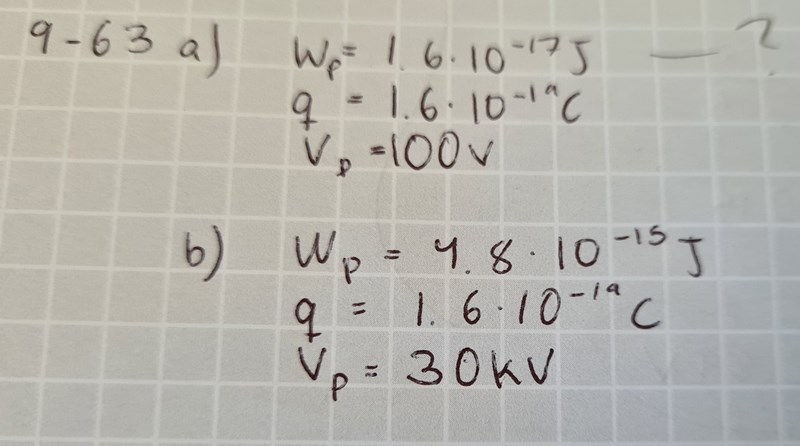 9-63 a) Wp = 1.6·10⁻¹⁷ J — ?
q = 1.6·10⁻¹⁹ C
Vp = 100 V
b) Wp = 4.8·10⁻¹⁵ J
q = 1.6·10⁻¹⁹ C
Vp = 30 kV